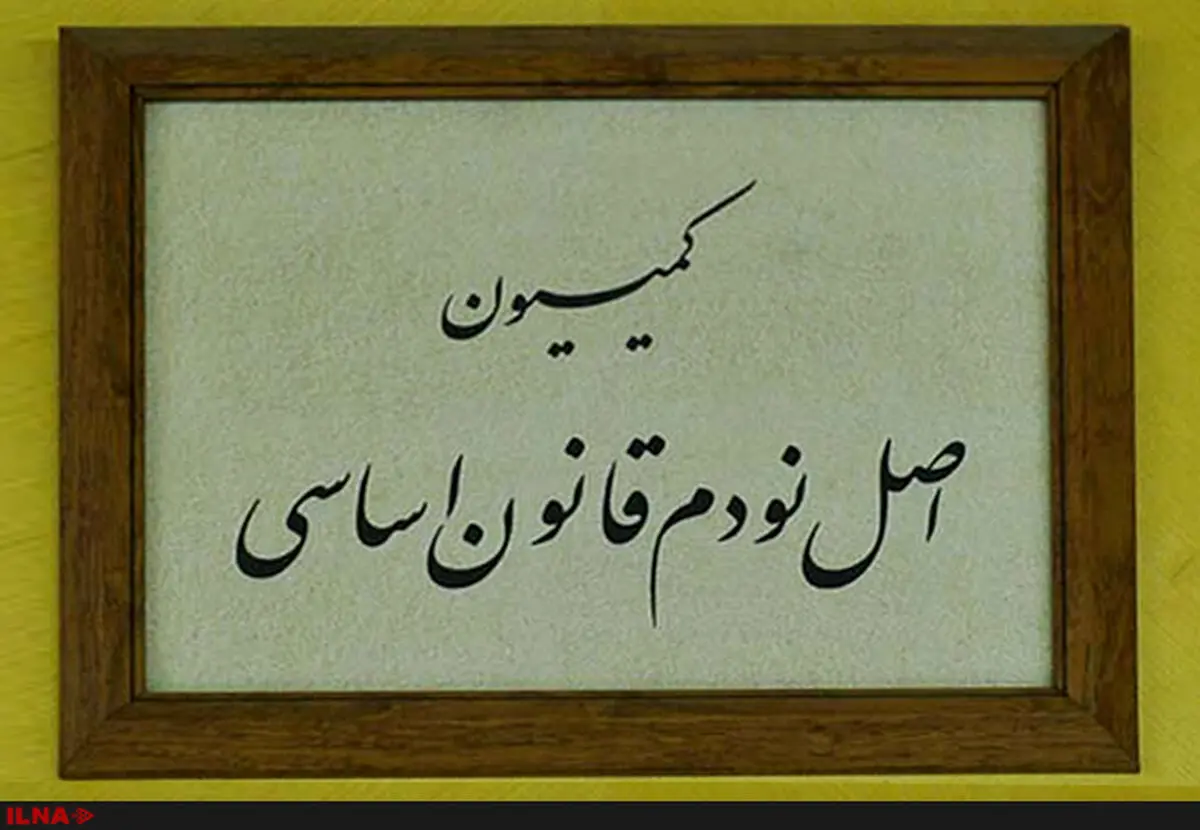 کمیسیون
اصل نودم قانون اساسی
ILNA